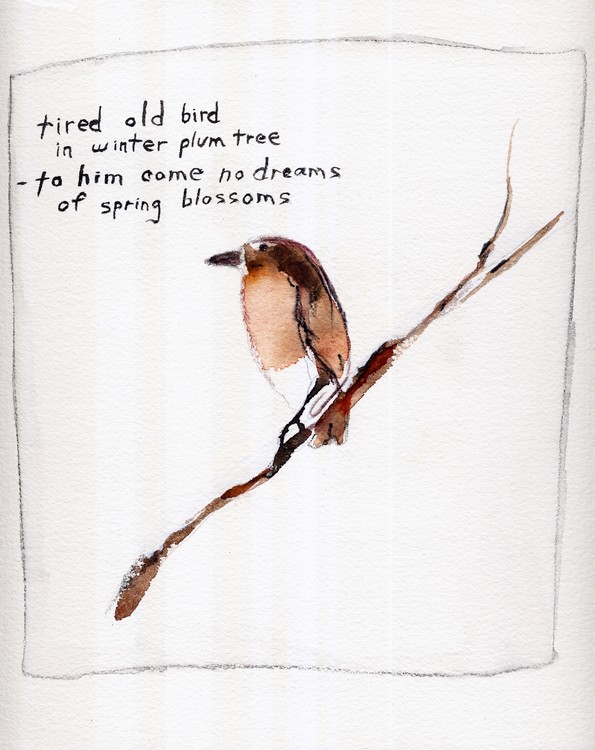 tired old bird
in winter plum tree
- to him come no dreams
of spring blossoms